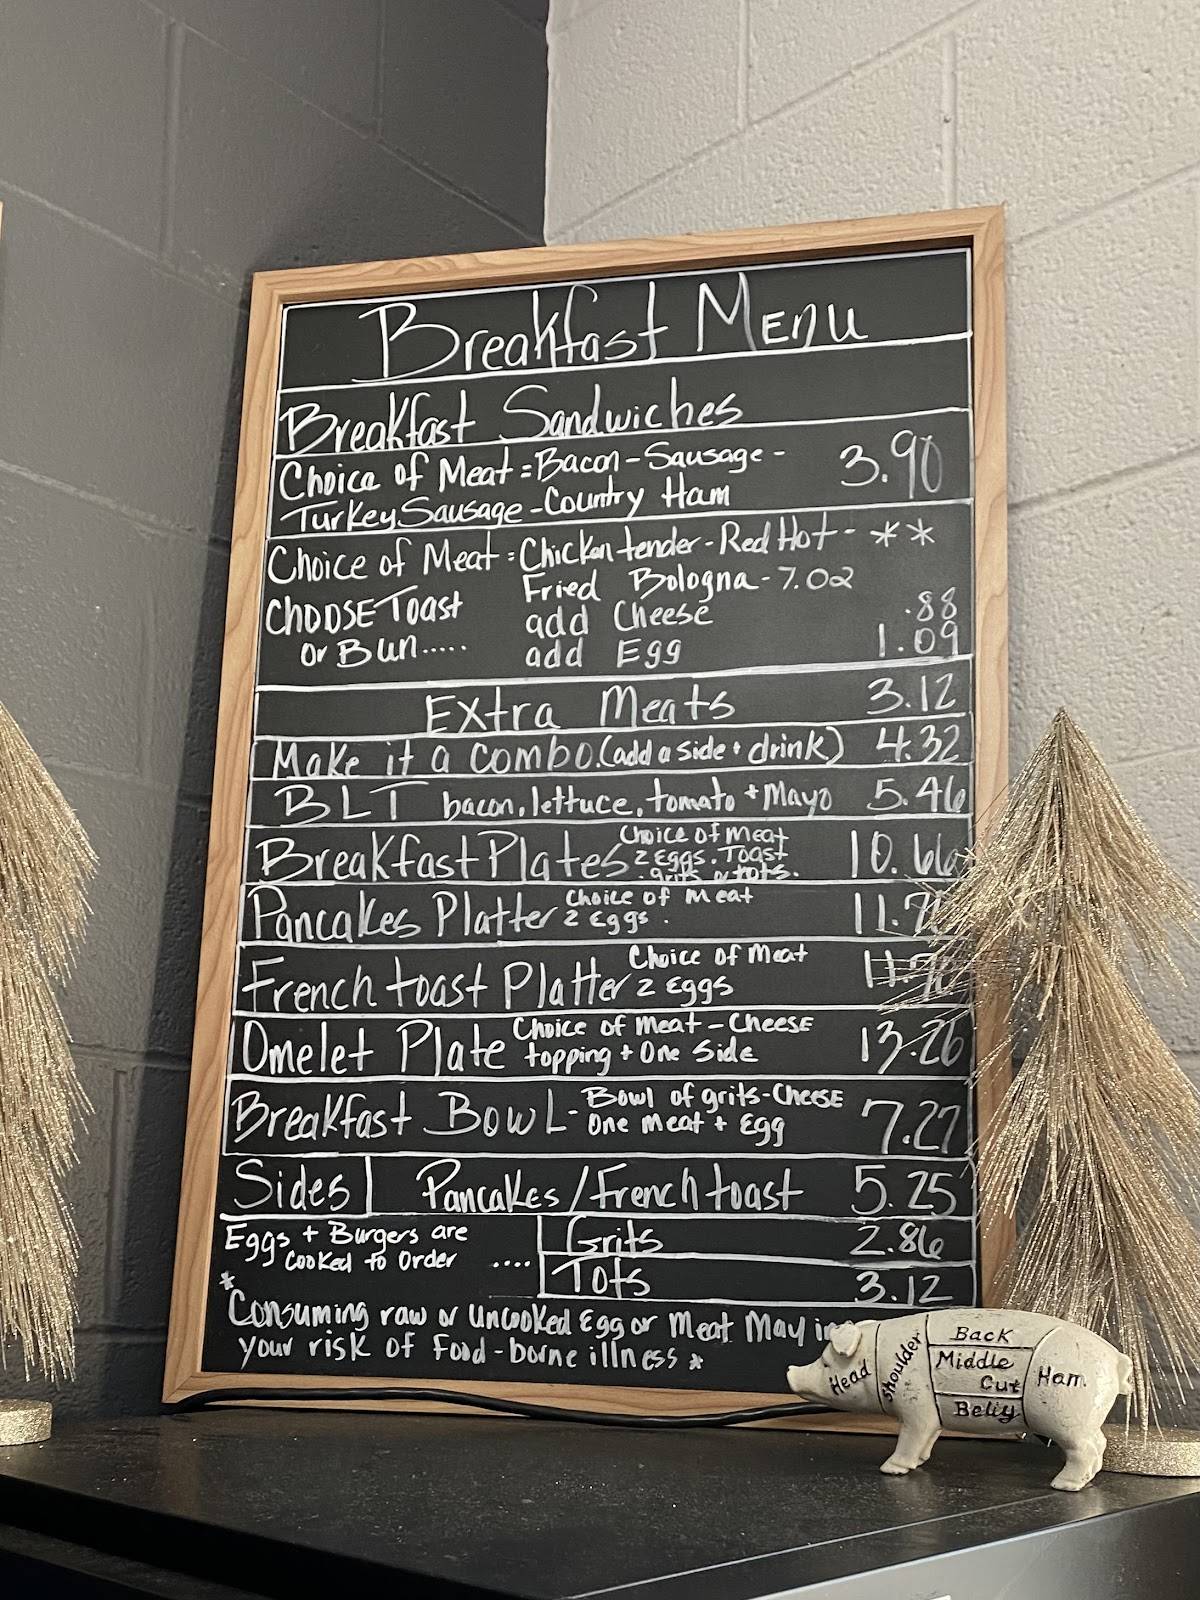 Breakfast Menu
Breakfast Sandwiches
Choice of Meat = Bacon - Sausage - 3.90
Turkey Sausage - Country Ham
Choice of Meat = Chicken tender - Red Hot - **
Fried Bologna - 7.02
CHOOSE Toast add Cheese .88
or Bun..... add Egg 1.09
Extra Meats 3.12
Make it a combo. (add a side + drink) 4.32
BLT bacon, lettuce, tomato + Mayo 5.46
Breakfast Plates Choice of Meat 10.66
2 Eggs. Toast
. grits or tots.
Pancakes Platter Choice of Meat
2 Eggs .
French toast Platter Choice of Meat
2 Eggs
Omelet Plate Choice of Meat - Cheese 13.26
topping + One Side
Breakfast Bowl - Bowl of grits - Cheese 7.27
One Meat + Egg
Sides Pancakes / French toast 5.25
Eggs + Burgers are Grits 2.86
Cooked to Order .... Tots 3.12
* Consuming raw or Uncooked Egg or Meat May
your risk of Food-borne illness *
Head Shoulder Back
Middle
Cut Ham.
Belly